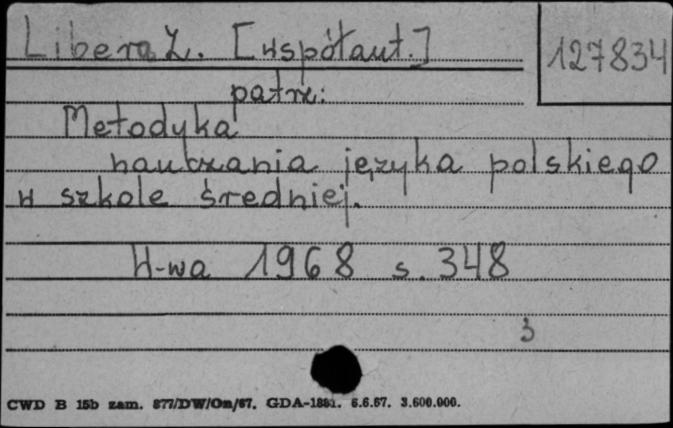 Libera Z. [współaut.]
127834
patrz:
Metodyka
nauczania języka polskiego
w szkole średniej.
W-wa 1968 s. 348
3
CWD B 15b zam. 877/DW/Om/67. GDA-1881. 6.6.67. 3.600.000.